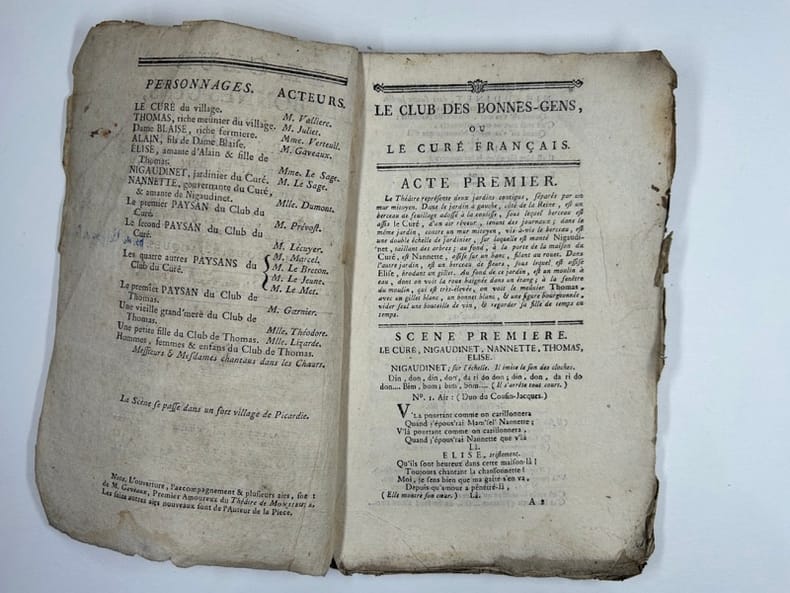 PERSONNAGES. ACTEURS.
LE CURÉ du village. M. Valliere.
THOMAS, riche meûnier du village. M. Juliet.
Dame BLAISE, riche fermiere. Mme. Verteuil.
ALAIN, fils de Dame Blaise. M. Gaveaux.
ELISE, amante d'Alain & fille de
Thomas. Mme. Le Sage.
NIGAUDINET, jardinier du Curé. M. Le Sage.
NANNETTE, gouvernante du Curé,
& amante de Nigaudinet. Mlle. Dumont.
Le premier PAYSAN du Club du
Curé. M. Prévost.
Le second PAYSAN du Club du
Curé. M. Lécuyer.
Les quatre autres PAYSANS du
Club du Curé.
M. Marcel.
M. Le Breton.
M. Le Jeune.
M. Le Met.
Le premier PAYSAN du Club de
Thomas. M. Garnier.
Une vieille grand'meré du Club de
Thomas. Mlle. Théodore.
Une petite fille du Club de Thomas. Mlle. Lizarde.
Hommes, femmes & enfans du Club de Thomas.
Messieurs & Mesdames chantans dans les Chœurs.
La Scène se passe dans un fort village de Picardie.
Note. L'ouverture, l'accompagnement & plusieurs airs, sont
de M. Gaveaux, Premier Amoureux du Théâtre de MONSIEUR;
Les faits autres airs nouveaux sont de l'Auteur de la Piece.
LE CLUB DES BONNES-GENS,
OU
LE CURÉ FRANÇAIS.
ACTE PREMIER.
Le Théâtre représente deux jardins contigus, séparés par un
mur mitoyen. Dans le jardin à gauche, côté de la Reine, est un
berceau de feuillage adossé à la coulisse, sous lequel berceau est
assis le Curé, d'un air rêveur, tenant des journaux; dans le
même jardin, contre un mur mitoyen, vis-à-vis le berceau, est
une double échelle de jardinier, sur laquelle est monté Nigaudi-
net, taillant des arbres; au fond, à la porte de la maison du
Curé, est Nannette, assise sur un banc, filant au rouet. Dans
l'autre jardin, est un berceau de fleurs, sous lequel est assise
Elise, brodant un gillet. Au fond de ce jardin, est un moulin à
eau, dont on voit la roue baignée dans un étang; à la fenêtre
du moulin, qui est très-élevée, on voit le meûnier Thomas,
avec un gillet blanc, un bonnet blanc, & une figure bourgeonnée,
vider seul une bouteille de vin, & regarder sa fille de temps en
temps.
SCENE PREMIERE.
LE CURÉ, NIGAUDINET, NANNETTE, THOMAS,
ELISE.
NIGAUDINET, sur l'échelle. Il imite le son des cloches.
Din, don, din, don, da ri do don; din, don, da ri do
don.... Bim, bom; bim, bom.... (Il s'arrête tout court.)
N°. 1. Air: (Duo du Cousin-Jacques.)
V'là pourtant comme on carillonnera
Quand j'épous'rai Mam'sel' Nannette;
V'là pourtant comme on carillonnera,
Quand j'épous'rai Nannette que v'là
Là.
ELISE, tristement.
Qu'ils sont heureux dans cette maison-là!
Toujours chantant la chansonnette!
Moi, je sens bien que ma gaîté s'en va,
Depuis qu'amour a pénétré-là,
(Elle montre son cœur.) Là.
A 2